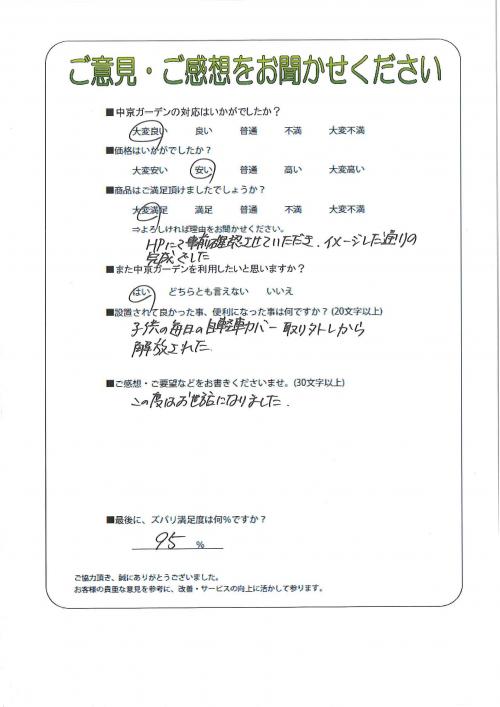 ご意見・ご感想をお聞かせください
■中京ガーデンの対応はいかがでしたか？
大変良い 良い 普通 不満 大変不満
■価格はいかがでしたか？
大変安い 安い 普通 高い 大変高い
■商品はご満足頂けましたでしょうか？
大変満足 満足 普通 不満 大変不満
⇒よろしければ理由をお聞かせください。
HPにて事前確認させていただき、イメージした通りの
完成でした
■また中京ガーデンを利用したいと思いますか？
はい どちらとも言えない いいえ
■設置されて良かった事、便利になった事は何ですか？(20文字以上)
子供の毎日の自転車カバー取り外しから
解放された.
■ご感想・ご要望などをお書きくださいませ。(30文字以上)
この度はお世話になりました.
■最後に、ズバリ満足度は何%ですか？
95 %
ご協力頂き、誠にありがとうございました。
お客様の貴重な意見を参考に、改善・サービスの向上に活かして参ります。